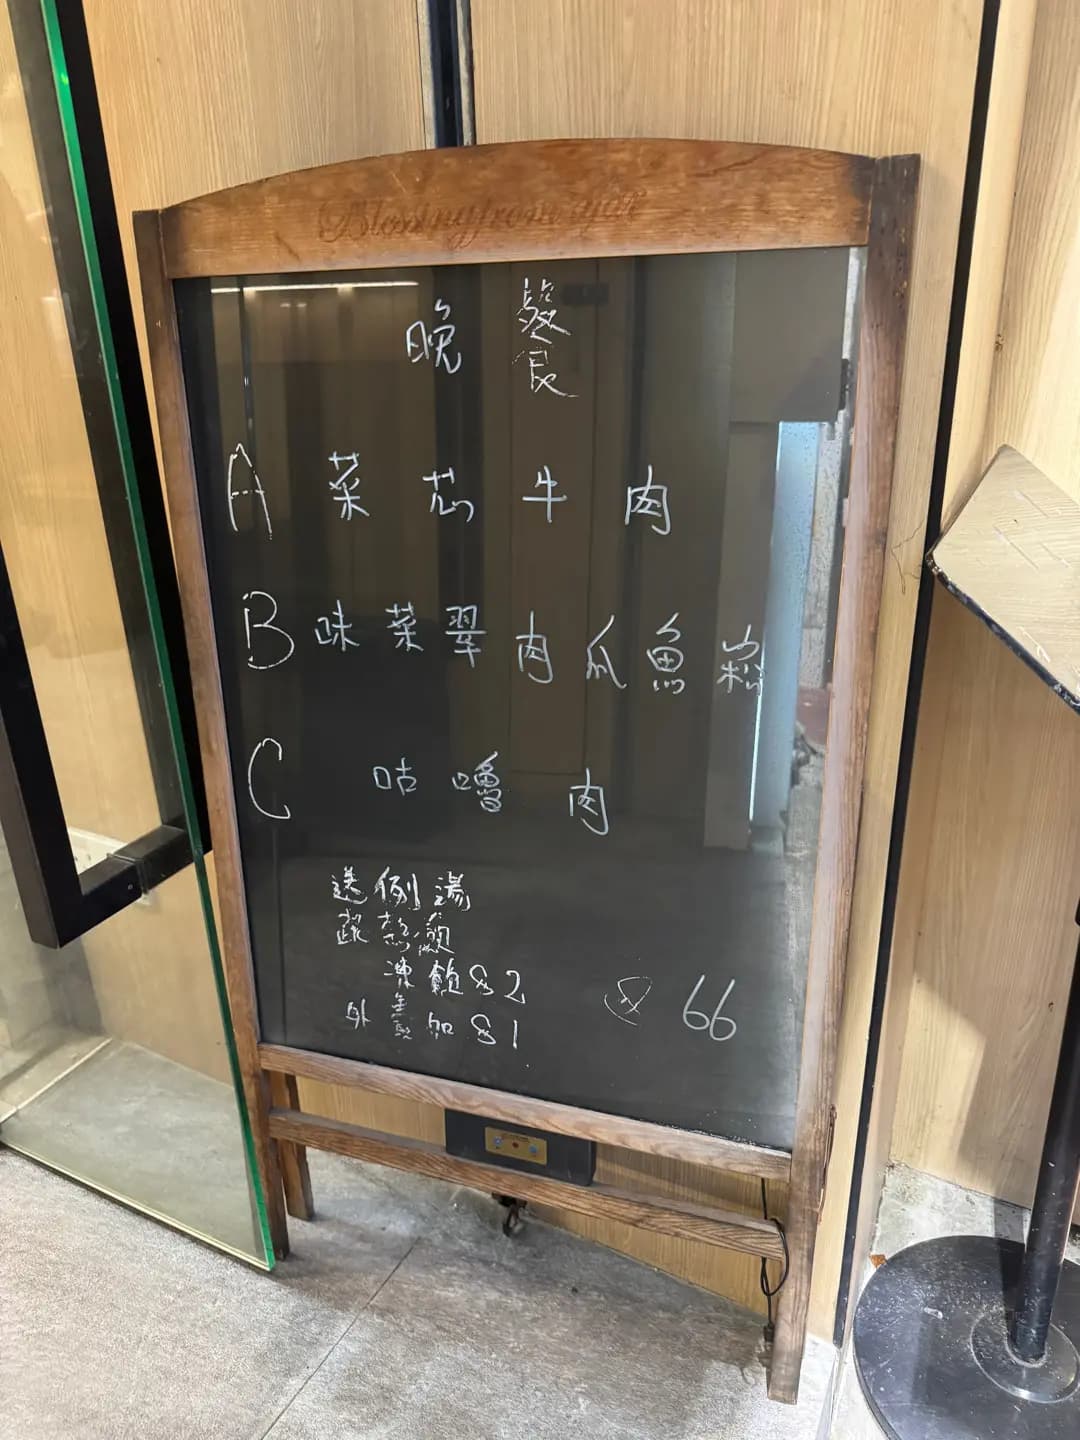 Blessing from afar
晚餐
A 菜芯牛肉
B 味菜翠肉瓜魚崧
C 咕嚕肉
送例湯
熱飲
凍飲 $2
外賣加 $1
$ 66